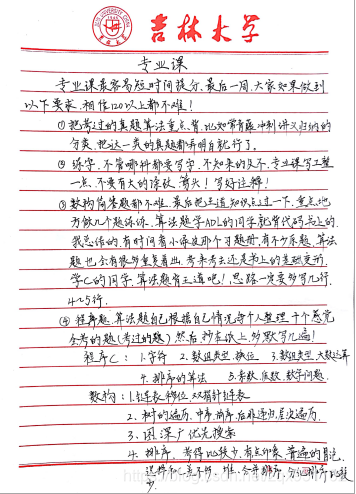 吉林大学
专业课
专业课最容易短时间提分,最后一周,大家如果做到
以下要求,相信120以上都不难!
① 把考过的真题算法重点背,比如常青藤冲刺讲义归纳的
分类,把这一类的真题都弄明白就行了。
② 练字,不管哪科都要写字,不知来的及不,专业课写工整
一点,不要有大的涂改,箭头!写好注释!
③ 数构简答题都不难,最后把王道知识点过一下,重点地
方做几个题练练,算法题学ADL的同学就背代码书上的,
我总结的,有时间看小绿皮那个习题册,有不少原题,算法
题也会有很多重复着出,考来考去还是书上的基础更新,
学C的同学,算法题有王道吧!思路一定要多写几行,
4~5行。
④ 程序题,算法题自己根据自己情况每个人整理十个感觉
会考的题(考过的题)然后抄在纸上,多默写几遍!
程序C:1.字符 2.数组类型,换位 3.数组类型,大数运算
4.排序的算法 5.素数,质数,数学问题.
数构:1.链表,移位,双指针链表
2.树的遍历,中序,前序,后非递归,层次遍历.
3.图深广优先搜索
4.排序,考得比较少,有点印象,普通的冒泡,
选择和C差不多,堆,合并排序,分治排序比较
少.